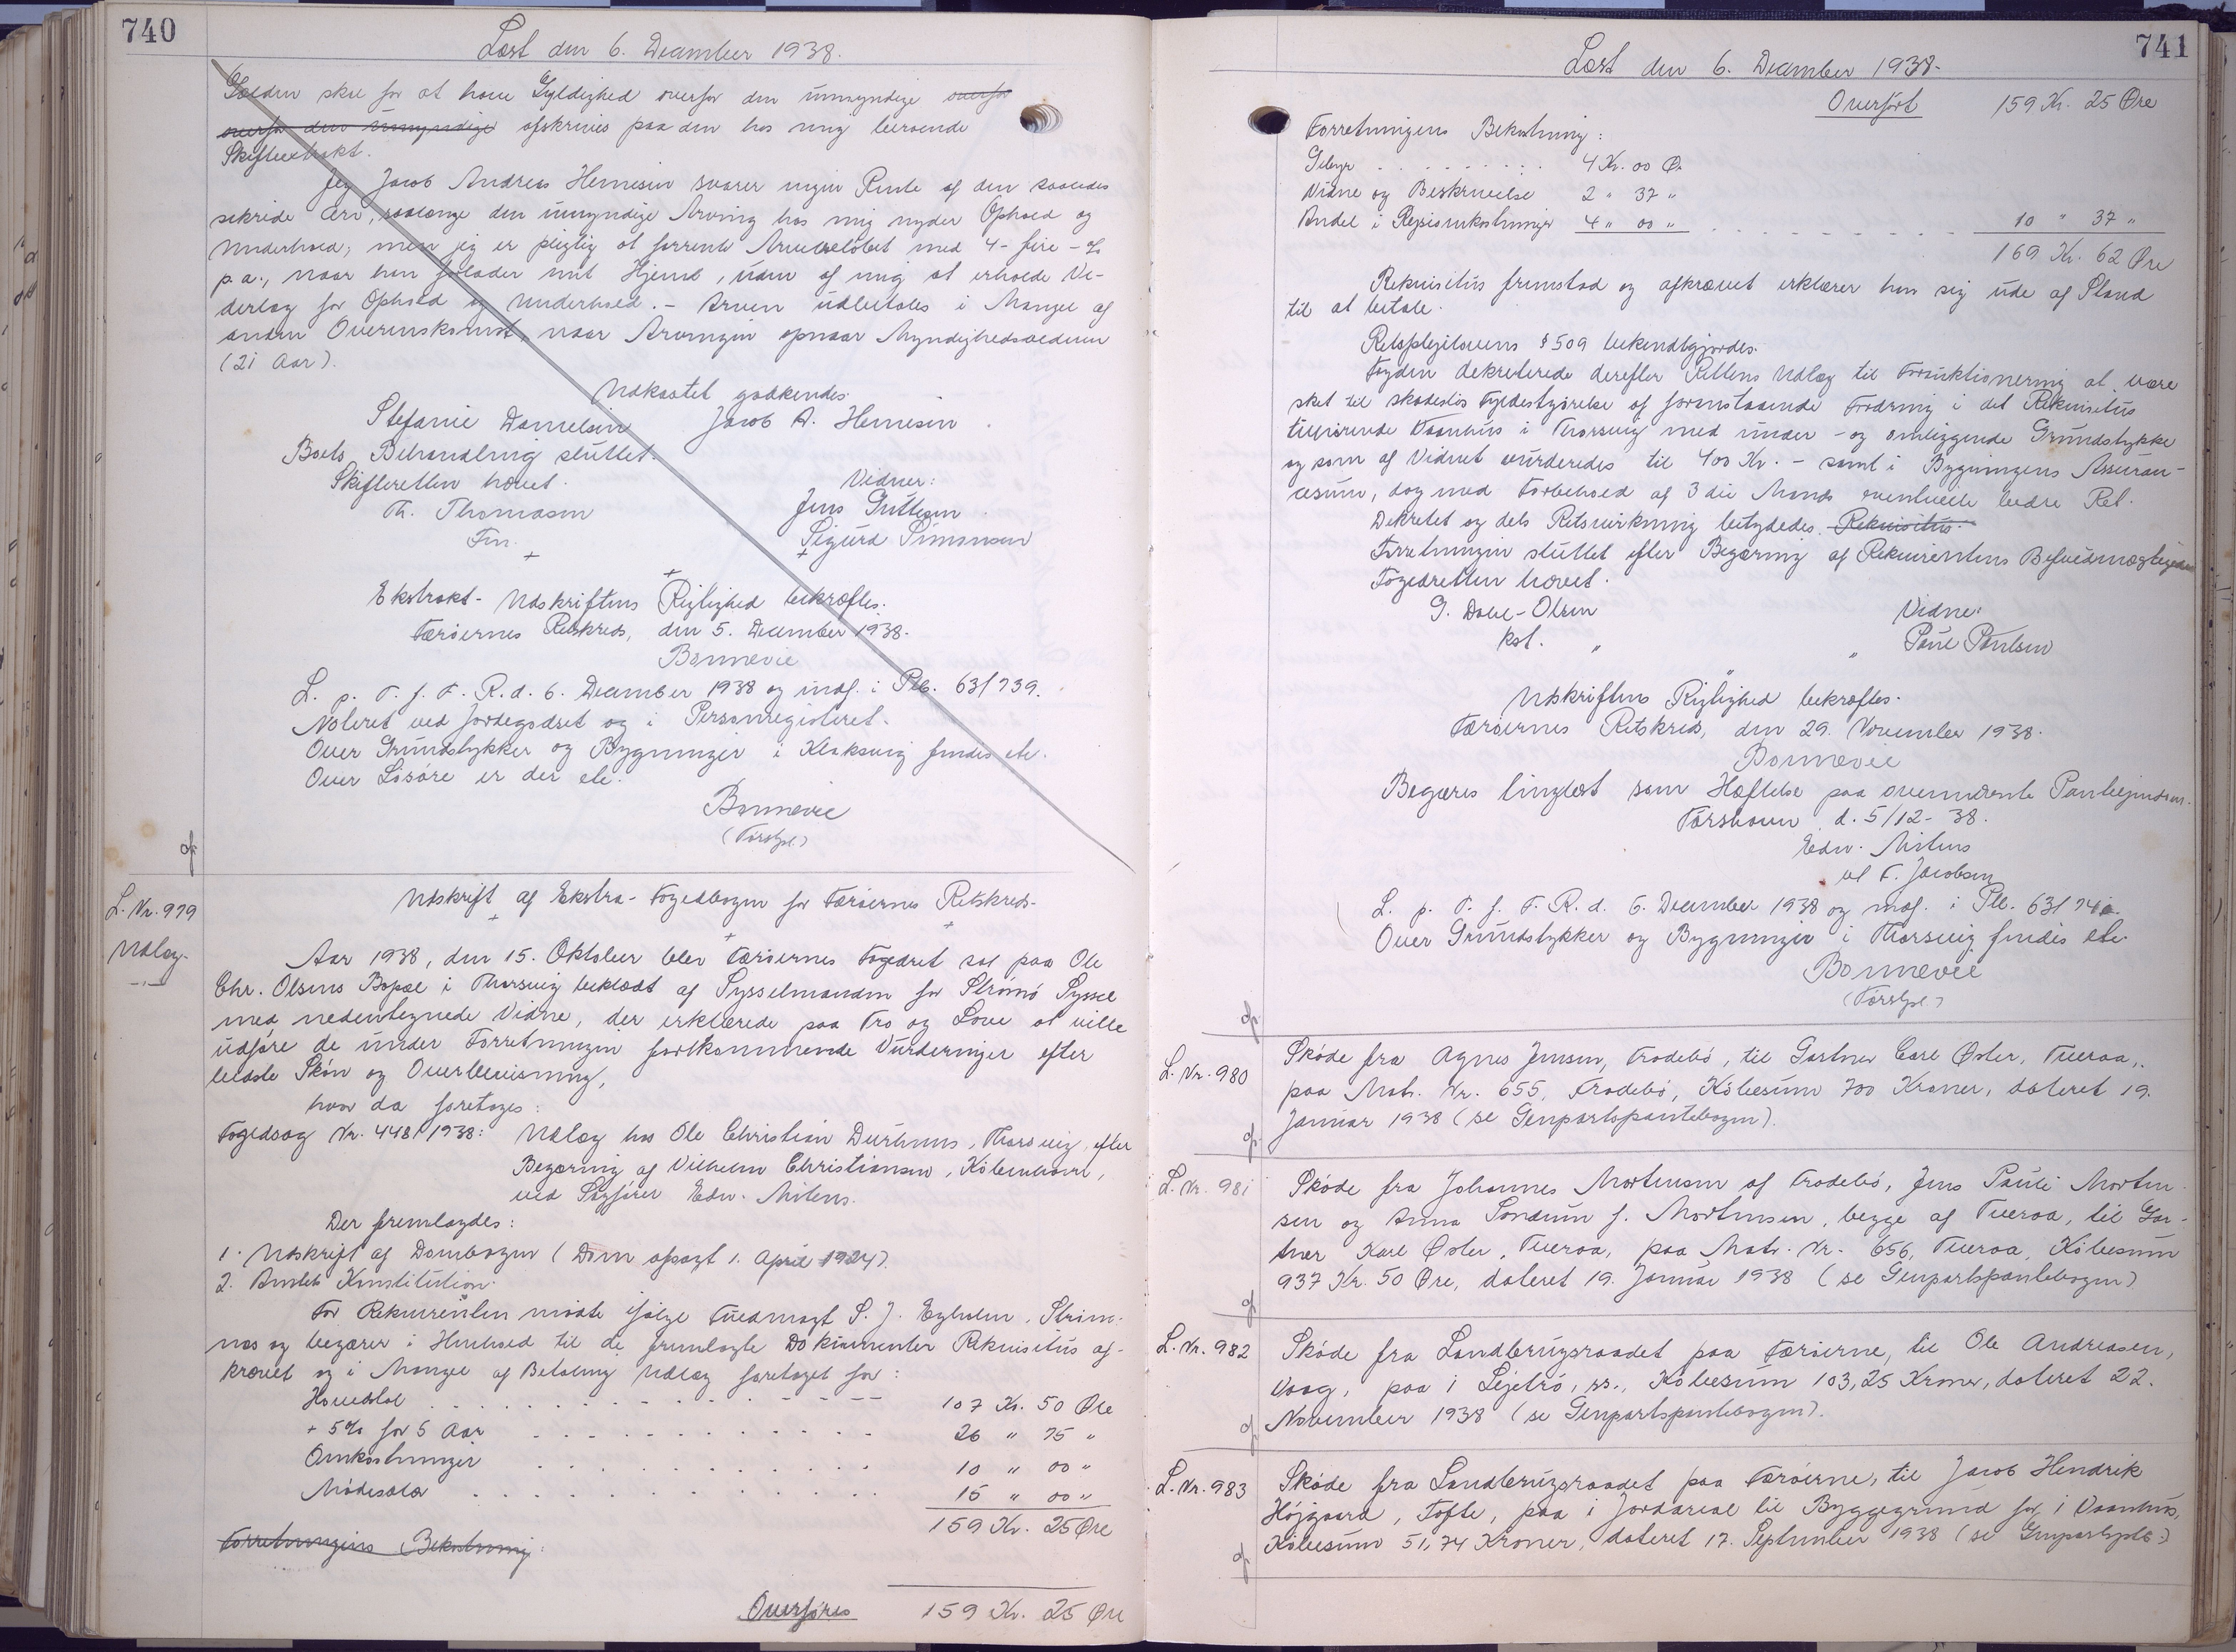 740
Læst den 6. December 1938.
Gælden skal for at have Gyldighed overfor den umyndige overfor
overfor den umyndige afskrives paa den hos mig beroende
Skifteextrakt.
Jeg Jacob Andreas Heinesen svarer ingen Rente af den saaledes
sikrede Arv, saalænge den umyndige Arving hos mig nyder Ophold og
Underhold; men jeg er pligtig at forrente Arvebeløbet med 4 - fire - %
p.a., naar han forlader mit Hjem, uden af mig at erholde Ve-
derlag for Ophold og Underhold. - Arven udbetales i Mangel af
anden Overenskomst, naar Arvingen opnaar Myndighedsalderen
(21 Aar).
Udkastet godkendes.
Stefanie Danielsen Jacob A. Heinesen
Boets Behandling sluttet.
Skifteretten hævet. Vidner:
Th. Thomasen Jens Guttesen
Fm. Sigurd Simonsen
Ekstrakt-Udskriftens Rigtighed bekræftes.
Færøernes Retskreds, den 5. December 1938.
Bonnevie
L. p. T. f. F. R. d. 6. December 1938 og indf. i Ptb. 63/739.
Noteret ved Jordegodset og i Personregisteret.
Over Grundstykker og Bygninger i Klaksvig findes ele.
Over Løsøre er der ele.
Bonnevie
(Førstgsl.)
L. Nr. 979
Udlæg.
Udskrift af Ekstra-Fogedbogen for Færøernes Retskreds.
Aar 1938, den 15. Oktober blev Færøernes Fogedret sat paa Ole
Chr. Olsens Bopæl i Thorsvig beklædt af Sysselmanden for Strømø Syssel
med nedentegnede Vidne, der erklærede paa Tro og Love at ville
udføre de under Forretningen forekommende Vurderinger efter
bedste Skøn og Overbevisning,
hvor da foretoges:
Fogedsag Nr. 448/1938: Udlæg hos Ole Christian Durhuus, Thorsvig, efter
Begæring af Vilhelm Christiansen, København,
ved Sagfører Edw. Mitens.
Der fremlagdes:
1. Udskrift af Dombogen (Dom afsagt 1. April 1924).
2. Amtets Konstitution.
For Rekvirenten mødte ifølge Fuldmagt S. J. Egholm, Strøm-
næs og begærer i Henhold til de fremlagte Dokumenter Rekvisitus af-
krævet og i Mangel af Betaling Udlæg foretaget for:
Hovedstol 107 Kr. 50 Øre
+ 5% for 5 Aar 26 " 75 "
Omkostninger 10 " 00 "
Mødesalær 15 " 00 "
159 Kr. 25 Øre
Forretningens Bekostning:
Overføres 159 Kr. 25 Øre
741
Læst den 6. December 1938.
Overført 159 Kr. 25 Øre
Forretningens Bekostning:
Gebyr 4 Kr. 00 Ø.
Vidne og Beskrivelse 2 " 37 "
Andel i Rejseomkostninger 4 " 00 " 10 " 37 "
169 Kr. 62 Øre
Rekvisitus fremstod og afkrævet erklærer han sig ude af Stand
til at betale.
Retsplejelovens § 509 bekendtgjordes.
Fogden dekreterede derefter Rettens Udlæg til Forauktionering at være
sket til skadesløs Fyldestgørelse af foranstaaende Fordring i det Rekvisitus
tilhørende Vaanhus i Thorsvig med under- og omliggende Grundstykke
og som af Vidnet vurderedes til 400 Kr. - samt i Bygningens Assuran-
cesum, dog med Forbehold af 3die Mands eventuelle bedre Ret.
Dekretet og dets Retsvirkning betydedes Rekvisitus.
Forretningen sluttet efter Begæring af Rekvirentens Befuldmægtigede.
Fogedretten hævet.
G. Dahl-Olsen Vidne:
kst. Poul Poulsen
Udskriftens Rigtighed bekræftes.
Færøernes Retskreds, den 29. November 1938.
Bonnevie
Begæres tinglæst som Hæftelse paa ovennævnte Panteejendom.
Tórshavn d. 5/12-38.
Edw. Mitens
v/ F. Jacobsen
L. p. T. f. F. R. d. 6. December 1938 og indf. i Ptb. 63/740.
Over Grundstykker og Bygninger i Thorsvig findes ele.
Bonnevie
(Førstgsl.)
L. Nr. 980
Skøde fra Agnes Jensen, Frodebø, til Gartner Carl Øster, Tveraa,
paa Matr. Nr. 655, Frodebø, Købesum 700 Kroner, dateret 19.
Januar 1938 (se Genpartspantebogen).
L. Nr. 981
Skøde fra Johannes Mortensen af Frodebø, Jens Pauli Morten-
sen og Anna Sondrum f. Mortensen, begge af Tveraa, til Gar-
tner Karl Øster, Tveraa, paa Matr. Nr. 656, Tveraa, Købesum
937 Kr. 50 Øre, dateret 19. Januar 1938 (se Genpartspantebogen)
L. Nr. 982
Skøde fra Landbrugsraadet paa Færøerne, til Ole Andreasen,
Vaag, paa 1 Lejetrø, ss., Købesum 103,25 Kroner, dateret 22.
November 1938 (se Genpartspantebogen).
L. Nr. 983
Skøde fra Landbrugsraadet paa Færøerne, til Jacob Hendrik
Højgaard, Tofte, paa i Jordareal til Byggegrund for 1 Vaanhus,
Købesum 51,74 Kroner, dateret 17. September 1938 (se Genpartsptb.)